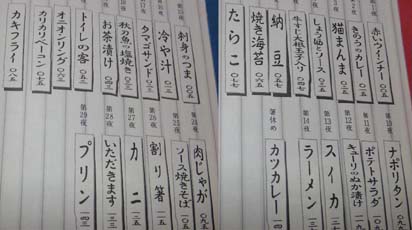 赤いウインナー 〇〇五
きのうのカレー
猫まんま
しょう油とソース
牛すじ大根玉子入り
納豆
焼き海苔
たらこ
ナポリタン
第11夜
ポテトサラダ
第12夜
キューリのぬか漬け
第13夜
スイカ
第14夜
ラーメン
箸休め
カツカレー
刺身のつま 〇〇五
冷や汁 〇一五
タマゴサンド
秋刀魚の塩焼き
お茶漬け
トイレの客
オニオンリング
カリカリベーコン 〇七五
カキフライ
第24夜
肉じゃが
第25夜
ソース焼きそば
第26夜
割り箸
第27夜
カニ
第28夜
いただきます 一三三
第29夜
プリン 一四三